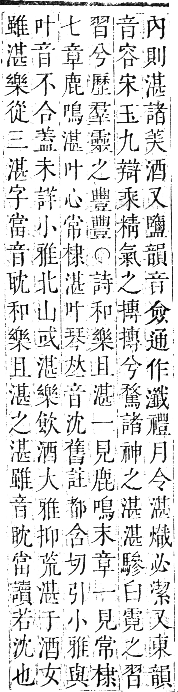 內則湛諸美酒又鹽韻音僉通作瀸禮月令湛熾必潔又東韻
音容宋玉九辯乘精氣之摶摶兮騖諸神之湛湛驂白霓之習
習兮歷羣靈之豐豐○詩和樂且湛一見鹿鳴末章一見常棣
七章鹿鳴湛叶心常棣湛叶琴苾音沈舊註都含切引小雅與
叶音不合葢未詳小雅北山或湛樂飮酒大雅抑荒湛于酒女
雖湛樂從三湛字當音耽和樂且湛之湛雖音耽當讀若沈也